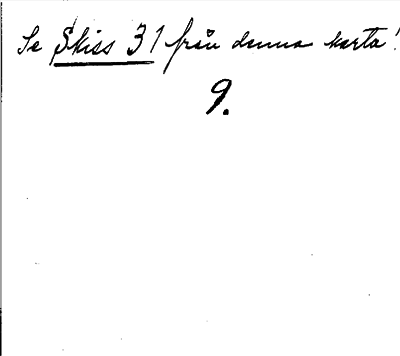 Se Skiss 31 från denna karta!
9.